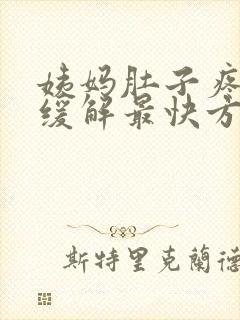 姨妈肚子疼
缓解最快方
斯特里克蘭德